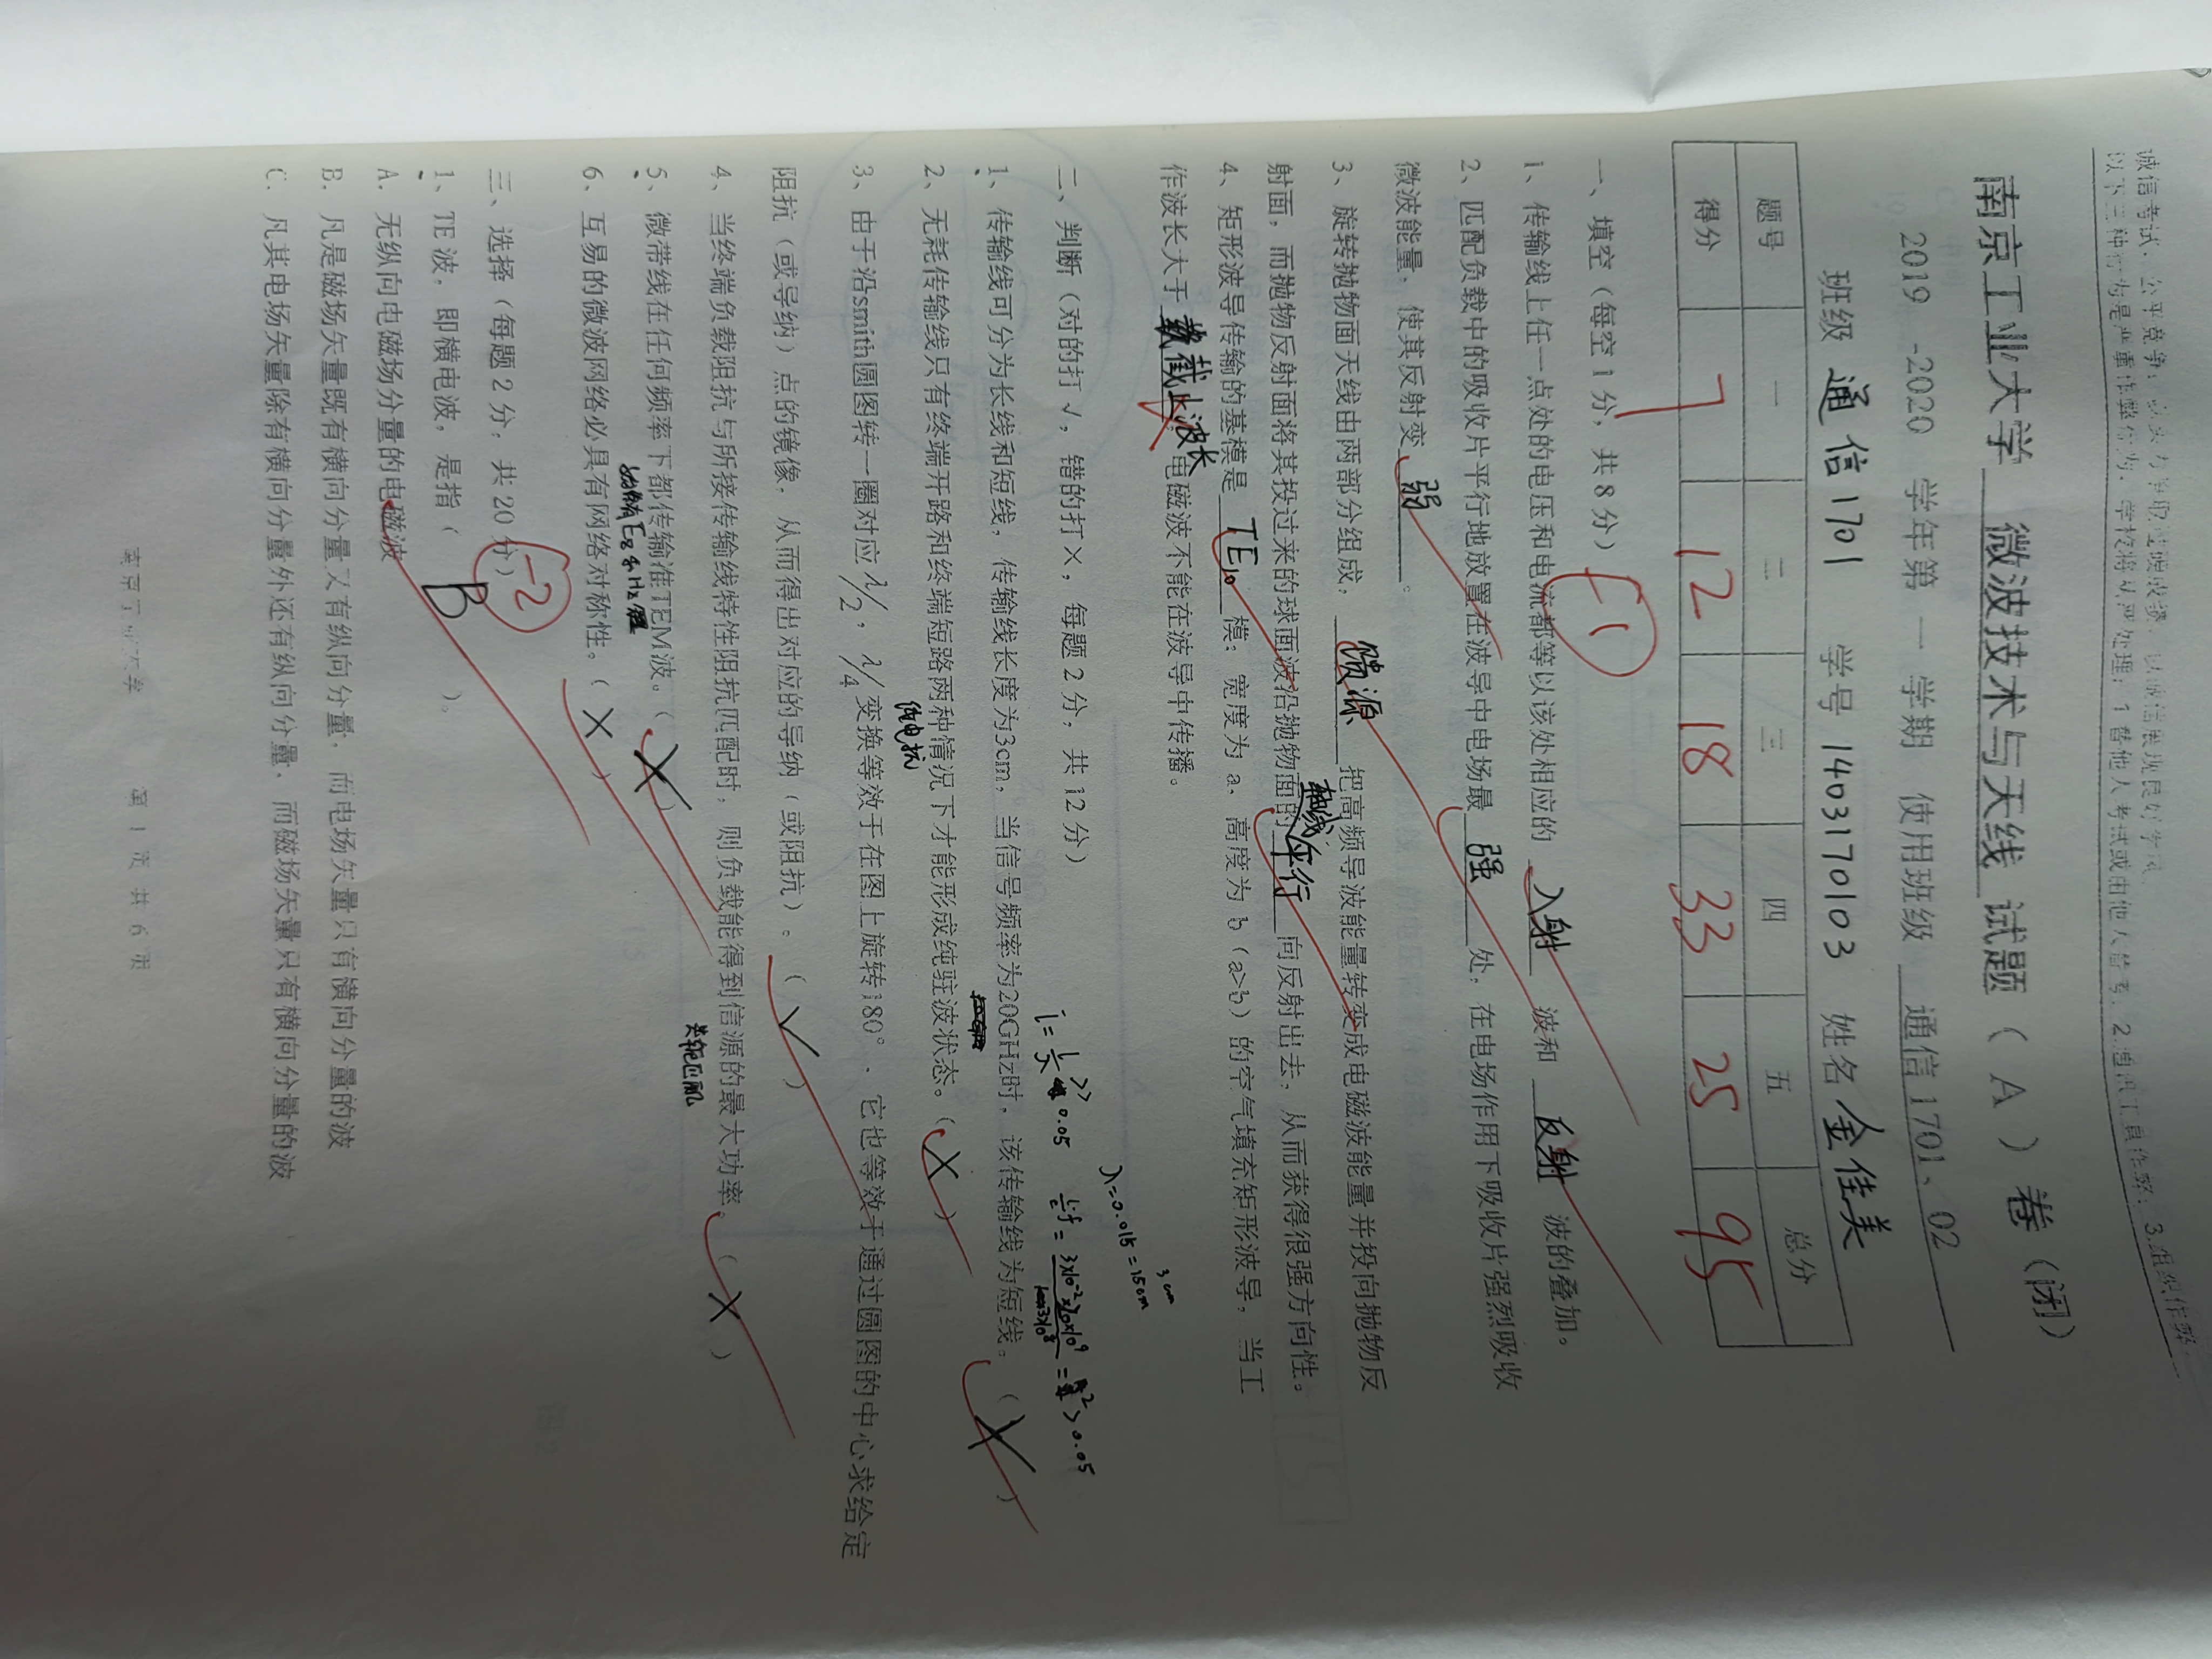 诚信考试，公平竞争；以实力争取过硬成绩，以诚信展现良好学风。
以下三种行为是严重作弊行为，学校将从严处理：1.替他人考试或由他人替考；2.通讯工具作弊；3.组织作弊。
南京工业大学 微波技术与天线 试题（ A ）卷（闭）
2019 -2020 学年第 一 学期 使用班级 通信1701、02
班级 通信1701 学号 1403170103 姓名 金佳美
题号 一 二 三 四 五 总分
得分 7 12 18 33 25 95
一、填空（每空1分，共8分） -1
1、传输线上任一点处的电压和电流都等以该处相应的 入射 波和 反射 波的叠加。
2、匹配负载中的吸收片平行地放置在波导中电场最 强 处，在电场作用下吸收片强烈吸收
微波能量，使其反射变 弱 。
3、旋转抛物面天线由两部分组成， 馈源 把高频导波能量转变成电磁波能量并投向抛物反
轴线
射面，而抛物反射面将其投过来的球面波沿抛物面的 平行 向反射出去，从而获得很强方向性。
4、矩形波导传输的基模是 TE₁₀ 模；宽度为 a，高度为 b（a>b）的空气填充矩形波导，当工
作波长大于 截止波长 ，电磁波不能在波导中传播。
3cm
λ=0.015=15cm
二、判断（对的打√，错的打×，每题2分，共12分）
1、传输线可分为长线和短线，传输线长度为3cm，当信号频率为20GHz时，该传输线为短线。（ X ）
2、无耗传输线只有终端开路和终端短路两种情况下才能形成纯驻波状态。（ X ）
纯电抗
3、由于沿smith圆图转一圈对应λ/2，λ/4变换等效于在图上旋转180°，它也等效于通过圆图的中心求给定
阻抗（或导纳）点的镜像，从而得出对应的导纳（或阻抗）。（ √ ）
4、当终端负载阻抗与所接传输线特性阻抗匹配时，则负载能得到信源的最大功率。（ X ）
共轭匹配
5、微带线在任何频率下都传输准TEM波。（ X ）
6、互易的微波网络必具有网络对称性。（ X ）
-2
三、选择（每题2分，共20分）
1、TE波，即横电波，是指（ B ）。
A．无纵向电磁场分量的电磁波
B．凡是磁场矢量既有横向分量又有纵向分量，而电场矢量只有横向分量的波
C．凡其电场矢量除有横向分量外还有纵向分量，而磁场矢量只有横向分量的波
南京工业大学 第 1 页 共 6 页